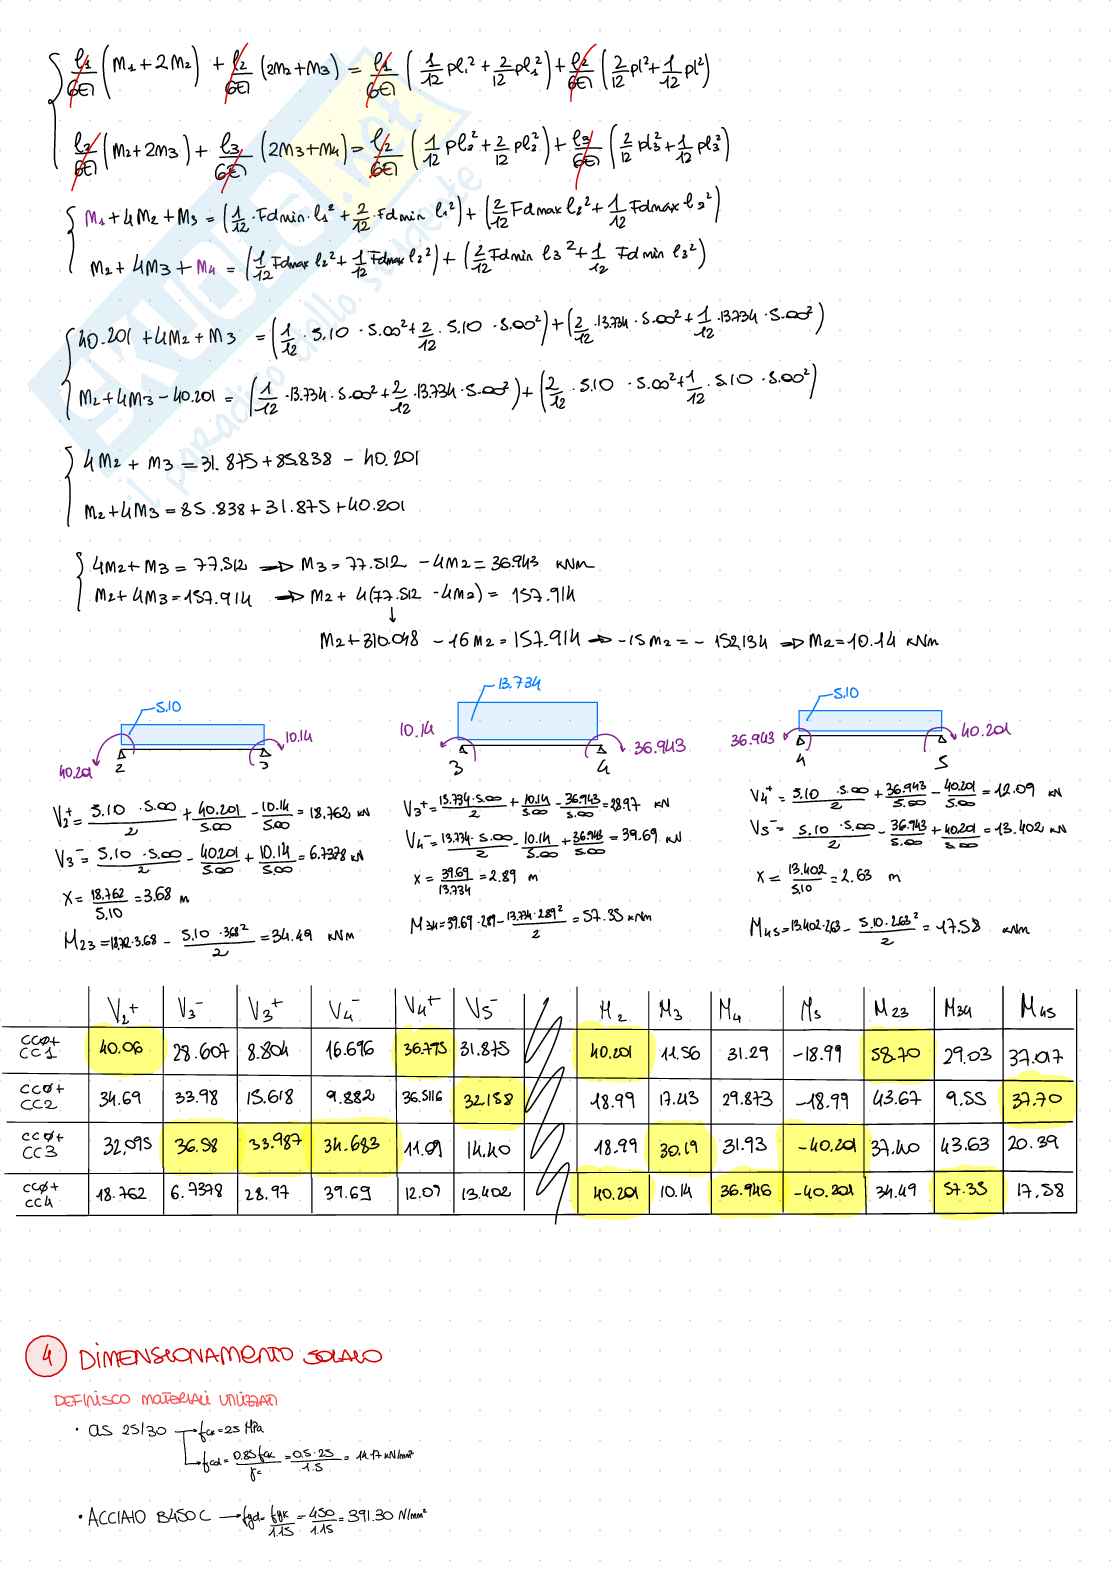 l₁/6EI (M₁+2M₂) + l₂/6EI (2M₂+M₃) = l₁/6EI (1/12 pl₁²+2/12 pl₁²)+l₂/6EI (2/12 pl²+1/12 pl²)
l₂/6EI (M₂+2M₃) + l₃/6EI (2M₃+M₄) = l₂/6EI (1/12 pl₂²+2/12 pl₂²)+l₃/6EI (2/12 pl₃²+1/12 pl₃²)
M₁+4M₂+M₃ = (1/12·Fdmin·l₁²+2/12·Fdmin l₁²)+(2/12 Fdmax l₂²+1/12 Fdmax l₂²)
M₂+4M₃+M₄ = (1/12 Fdmax l₂²+1/12 Fdmax l₂²)+(2/12 Fdmin l₃²+1/12 Fdmin l₃²)
40.201+4M₂+M₃ = (1/12·5.10·5.00²+2/12·5.10·5.00²)+(2/12·13.734·5.00²+1/12·13.734·5.00²)
M₂+4M₃-40.201 = (1/12·13.734·5.00²+2/12·13.734·5.00²)+(2/12·5.10·5.00²+1/12·5.10·5.00²)
4M₂+M₃=31.875+85.838-40.201
M₂+4M₃=85.838+31.875+40.201
4M₂+M₃=77.512 → M₃=77.512-4M₂=36.943 kNm
M₂+4M₃=157.914 → M₂+4(77.512-4M₂)=157.914
M₂+310.048-16M₂=157.914 → -15M₂=-152.134 → M₂=10.14 kNm
5.10
40.201 2 3 10.14
13.734
10.14 3 4 36.943
5.10
36.943 4 5 40.201
V₂⁺= 5.10·5.00/2 + 40.201/5.00 - 10.14/5.00 = 18.762 kN
V₃⁻= 5.10·5.00/2 - 40.201/5.00 + 10.14/5.00 = 6.7378 kN
x= 18.762/5.10 = 3.68 m
M₂₃=18.762·3.68 - 5.10·3.68²/2 = 34.49 kNm
V₃⁺= 13.734·5.00/2 + 10.14/5.00 - 36.943/5.00 = 28.97 kN
V₄⁻= 13.734·5.00/2 - 10.14/5.00 + 36.943/5.00 = 39.69 kN
x= 39.69/13.734 = 2.89 m
M₃₄=39.69·2.89 - 13.734·2.89²/2 = 57.35 kNm
V₄⁺= 5.10·5.00/2 + 36.943/5.00 - 40.201/5.00 = 12.09 kN
V₅⁻= 5.10·5.00/2 - 36.943/5.00 + 40.201/5.00 = 13.402 kN
x= 13.402/5.10 = 2.63 m
M₄₅=13.402·2.63 - 5.10·2.63²/2 = 17.58 kNm
V₂⁺ V₃⁻ V₃⁺ V₄⁻ V₄⁺ V₅⁻ M₂ M₃ M₄ M₅ M₂₃ M₃₄ M₄₅
CCØ+ CC1 40.06 28.607 8.804 16.696 36.795 31.875 40.201 11.56 31.29 -18.99 58.70 29.03 37.017
CCØ+ CC2 34.69 33.98 15.618 9.882 36.5116 32.158 18.99 17.43 29.873 -18.99 43.67 9.55 37.70
CCØ+ CC3 32,095 36.58 33.987 34.683 11.09 14.40 18.99 30.19 31.93 -40.201 37.40 43.63 20.39
CCØ+ CC4 18.762 6.7378 28.97 39.69 12.09 13.402 40.201 10.14 36.946 -40.201 34.49 57.35 17,58
4 DIMENSIONAMENTO SOLAIO
DEFINISCO MATERIALI UTILIZZATI
· CLS 25/30 → fck=25 MPa
→ fcd= 0.85fck/γc = 0.5·25/1.5 = 14.17 kN/mm²
· ACCIAIO B450C → fyd= fyk/1.15 = 450/1.15 = 391.30 N/mm²
SKUOLA.net
il paradiso dello studente